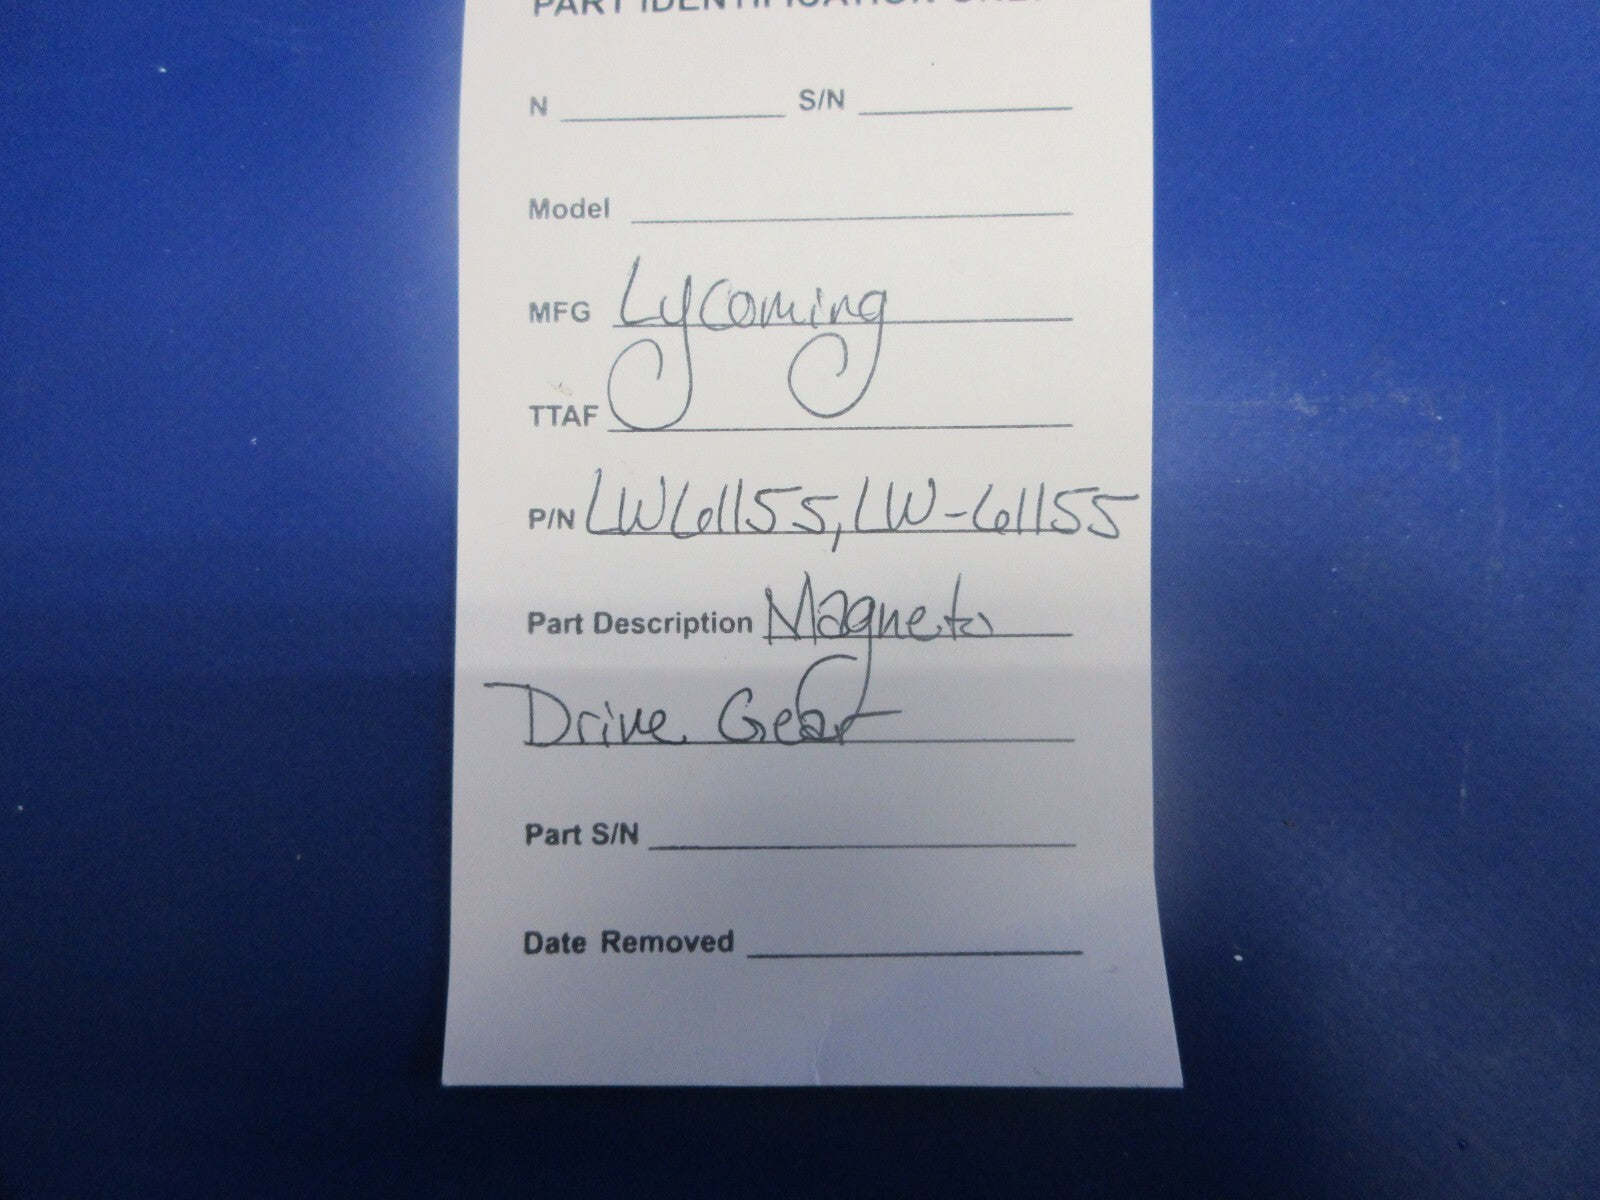 PART IDENTIFICATION ONLY
N S/N
Model
MFG Lycoming
TTAF
P/N LW61155, LW-61155
Part Description Magneto
Drive Gear
Part S/N
Date Removed